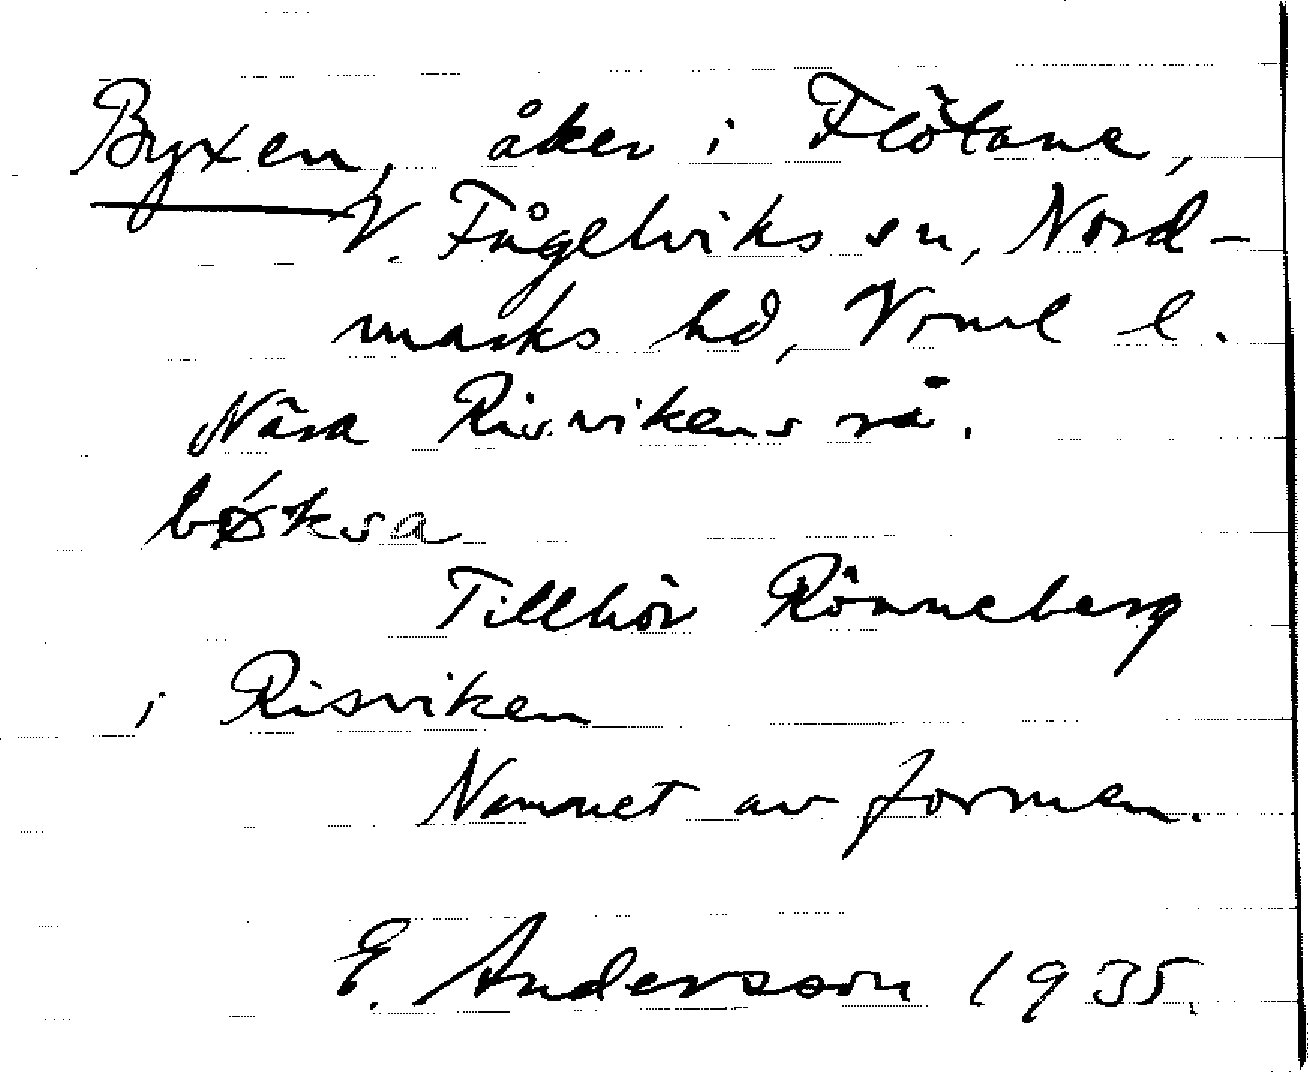 Byxen, åker i Flötane,
V. Fågelviks sn, Nord-
marks hd, Vrml l.
Nära Risvikens rå.
bǿksa
Tillhör Rönneberg
i Risviken
Namnet av formen.
E. Andersson 1935.